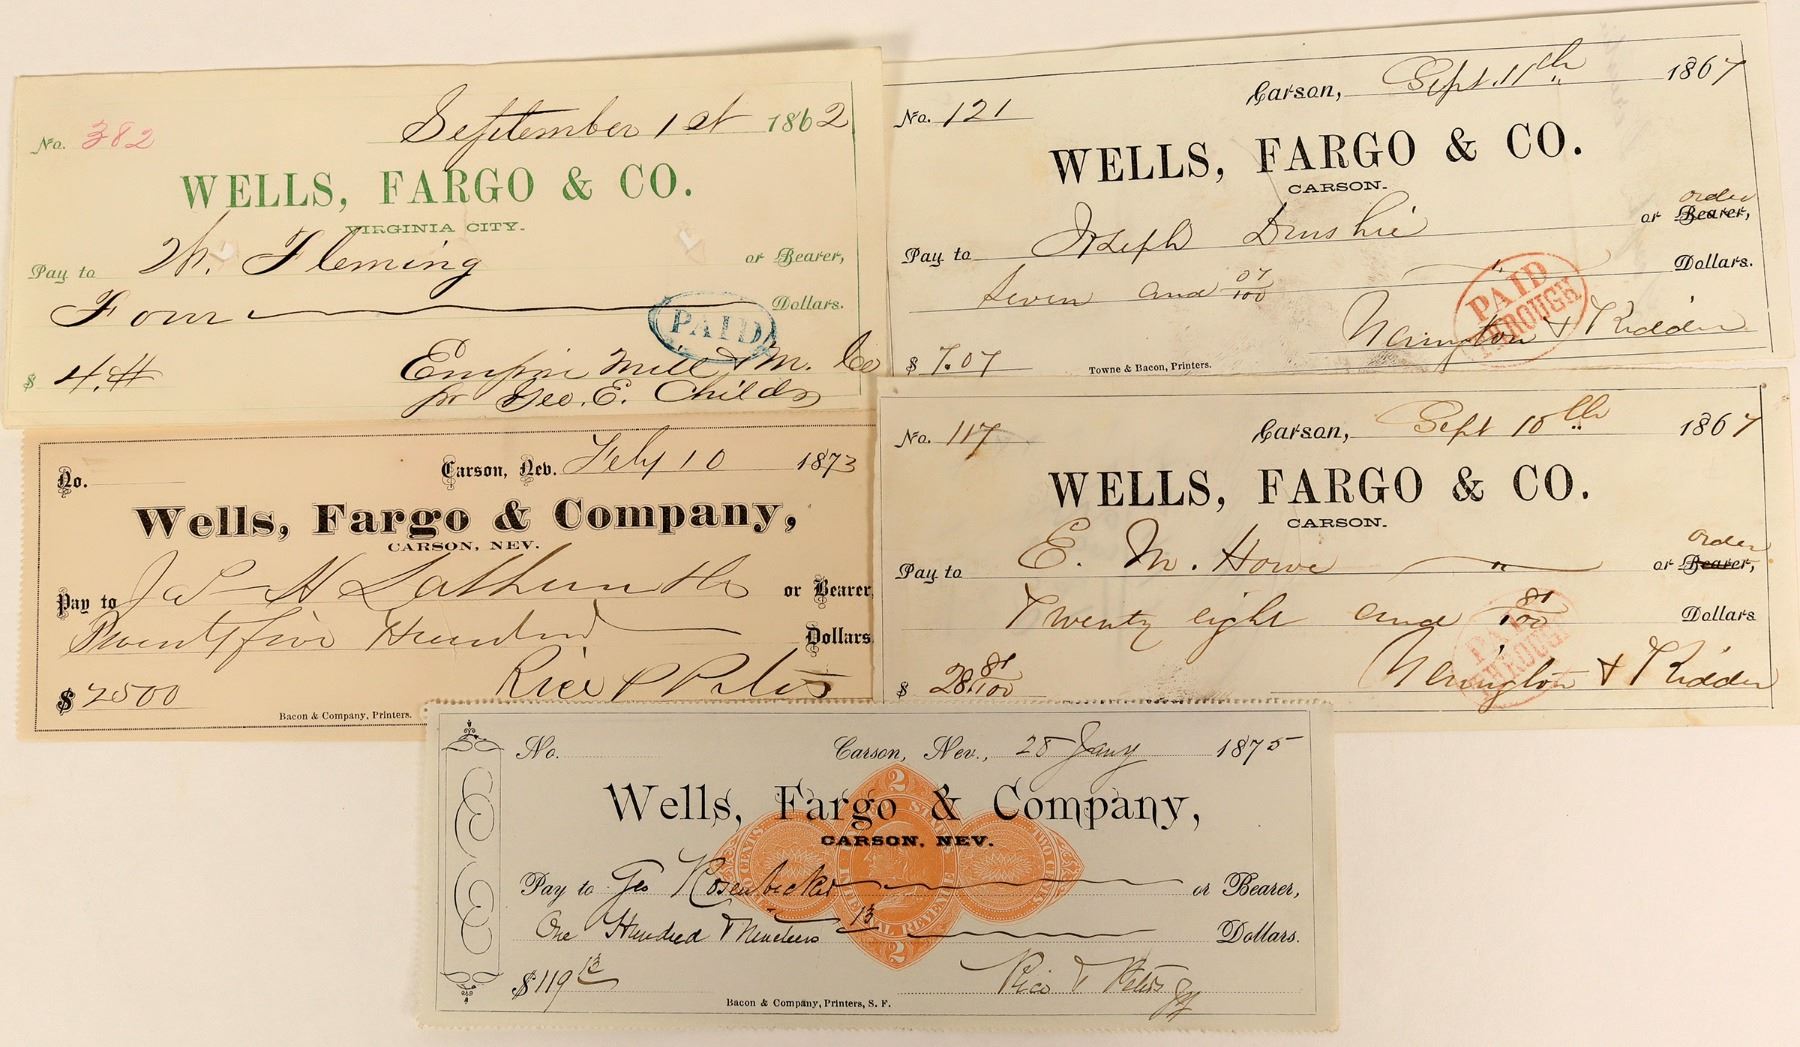 No. 382
September 1st 1862
WELLS, FARGO & CO.
VIRGINIA CITY.
Pay to W. Fleming or Bearer,
Four Dollars.
PAID
$ 4.
Empire Mill & M. Co
pr Geo. E. Childs
No. 121 Carson, Sept. 11th 1867
WELLS, FARGO & CO.
CARSON.
order
Pay to Joseph or Bearer,
Seven and 07/100 Dollars.
PAID THROUGH
Yerington & Kidder
$ 7.07
Towne & Bacon, Printers.
No. Carson, Nev. Feby 10 1873
Wells, Fargo & Company,
CARSON, NEV.
Pay to or Bearer
Twenty five Hundred Dollars
$ 2500 Rice & Peters
Bacon & Company, Printers.
No. 117 Carson, Sept 10th 1867
WELLS, FARGO & CO.
CARSON.
order
Pay to E. M. Howe or Bearer,
Twenty eight and 81/100 Dollars
PAID THROUGH
$ 28.81/100 Yerington & Kidder
No. Carson, Nev., 28 Jany 1875
Wells, Fargo & Company,
CARSON, NEV.
2
UNITED STATES
INTERNAL REVENUE
TWO CENTS
TWO CENTS
2
Pay to Geo Rosenbecker or Bearer,
One Hundred & Nineteen 13 Dollars.
$ 119 13 Rice & Peters
Bacon & Company, Printers, S. F.